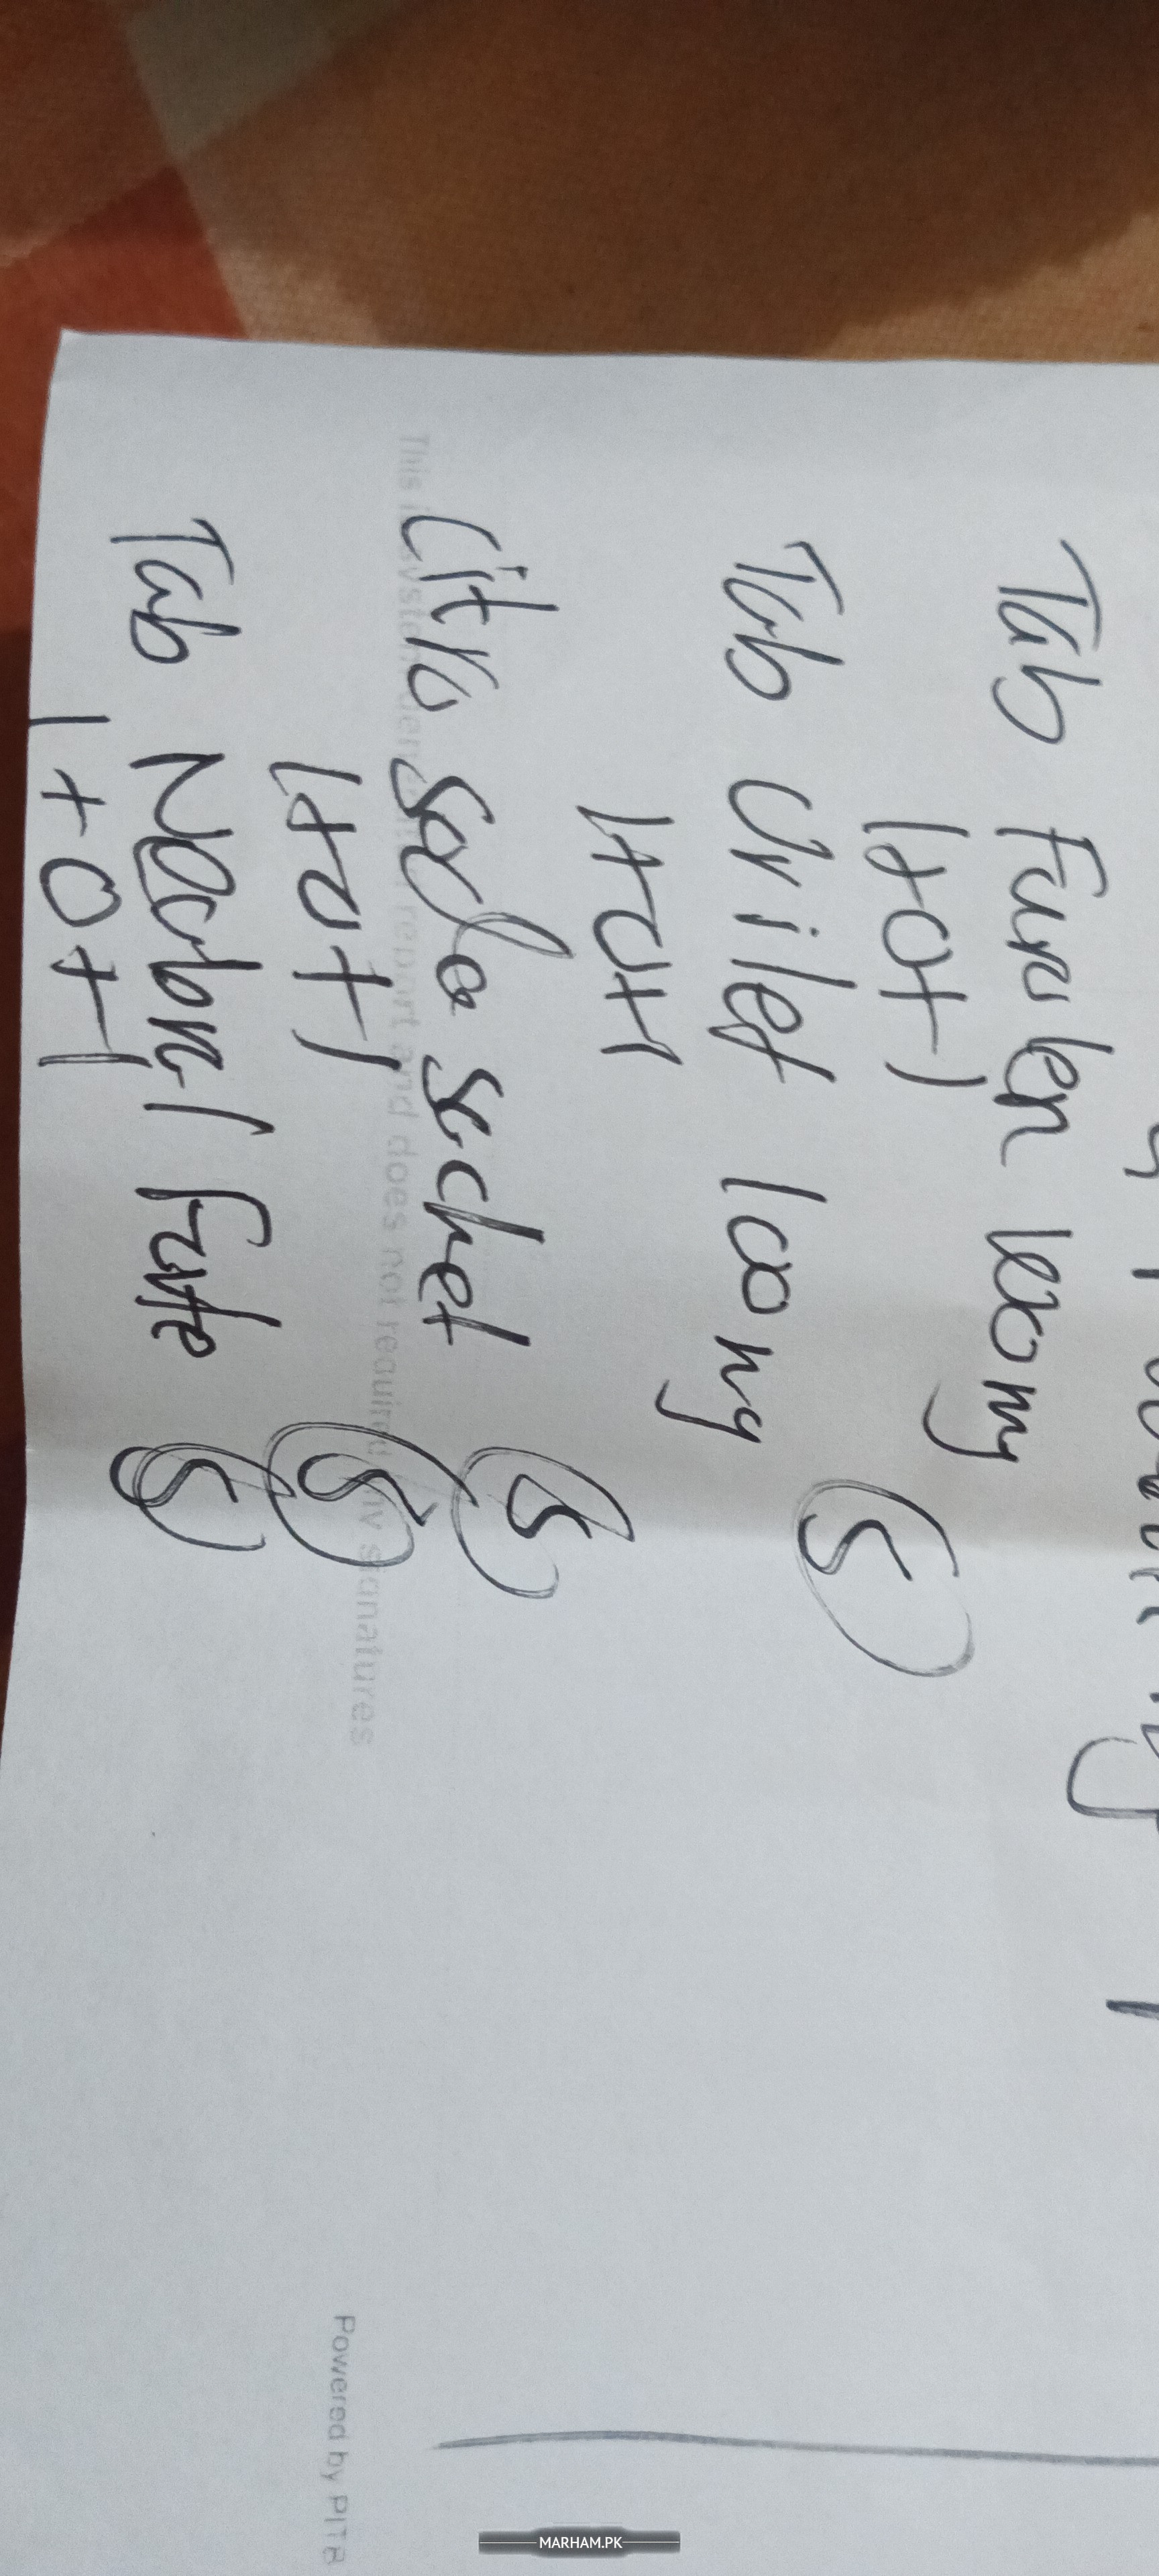 Tab Furolen 100mg
1+0+1
Tab Urilef 100mg
1+0+1
Citro soda sachet
1+0+1
Tab Nobral Fute
1+0+1
5
5
5
5
This is system generated report and does not require any signatures
Powered by PITB
MARHAM.PK